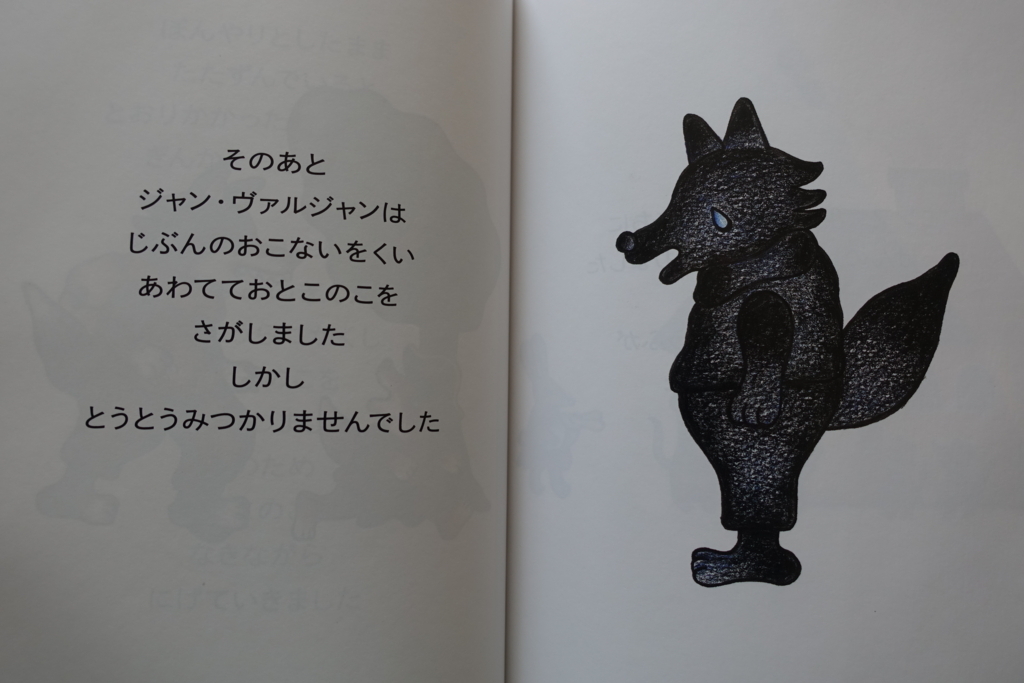 そのあと
ジャン・ヴァルジャンは
じぶんのおこないをくい
あわてておとこのこを
さがしました
しかし
とうとうみつかりませんでした